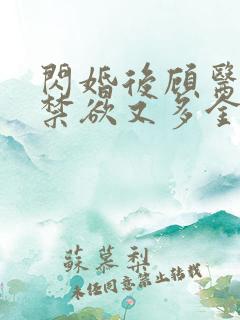 閃婚後顧醫
禁欲又多金
蘇慕梨
未经同意禁止转载